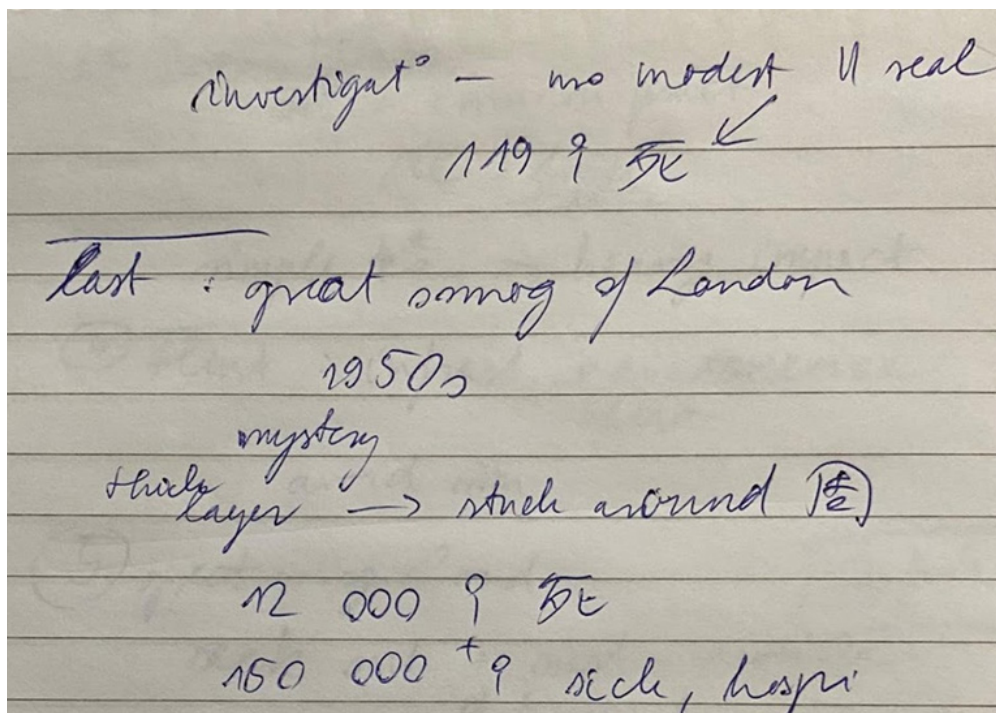 investigat° — no modest || real
119 ♀ 死 ↙
last : great smog of London
1950s
mystery
thick
layer → stuck around 周
12 000 ♀ 死
150 000 + ♀ sick, hospi